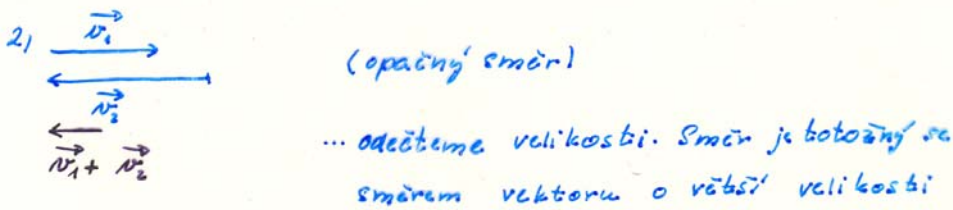 2) v₁
(opačný směr)
v₂
... odečteme velikosti. Směr je totožný se
v₁ + v₂
směrem vektoru o větší velikosti